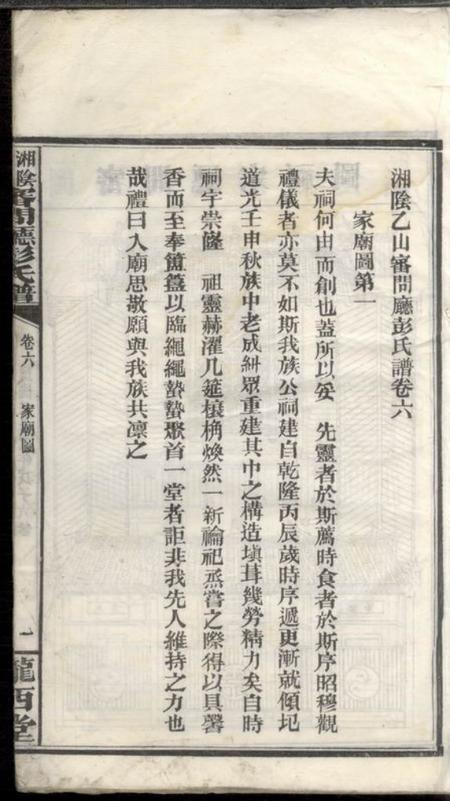 湘陰乙山審問廳彭氏譜卷六
家廟圖第一
夫祠何由而創也蓋所以妥 先靈者於斯薦時食者於斯序昭穆觀
禮儀者亦莫不如斯我族公祠建自乾隆丙辰歲時序遞更漸就傾圮
道光壬申秋族中老成糾眾重建其中之構造塡葺幾勞精力矣自時
祠宇崇隆 祖靈赫濯几筵榱桷煥然一新禴祀烝嘗之際得以具馨
香而至奉簠簋以臨繩繩蟄蟄聚首一堂者詎非我先人維持之力也
哉禮曰入廟思敬願與我族共凛之
湘陰審問廳彭氏譜
卷六
家廟圖
一
隴西堂